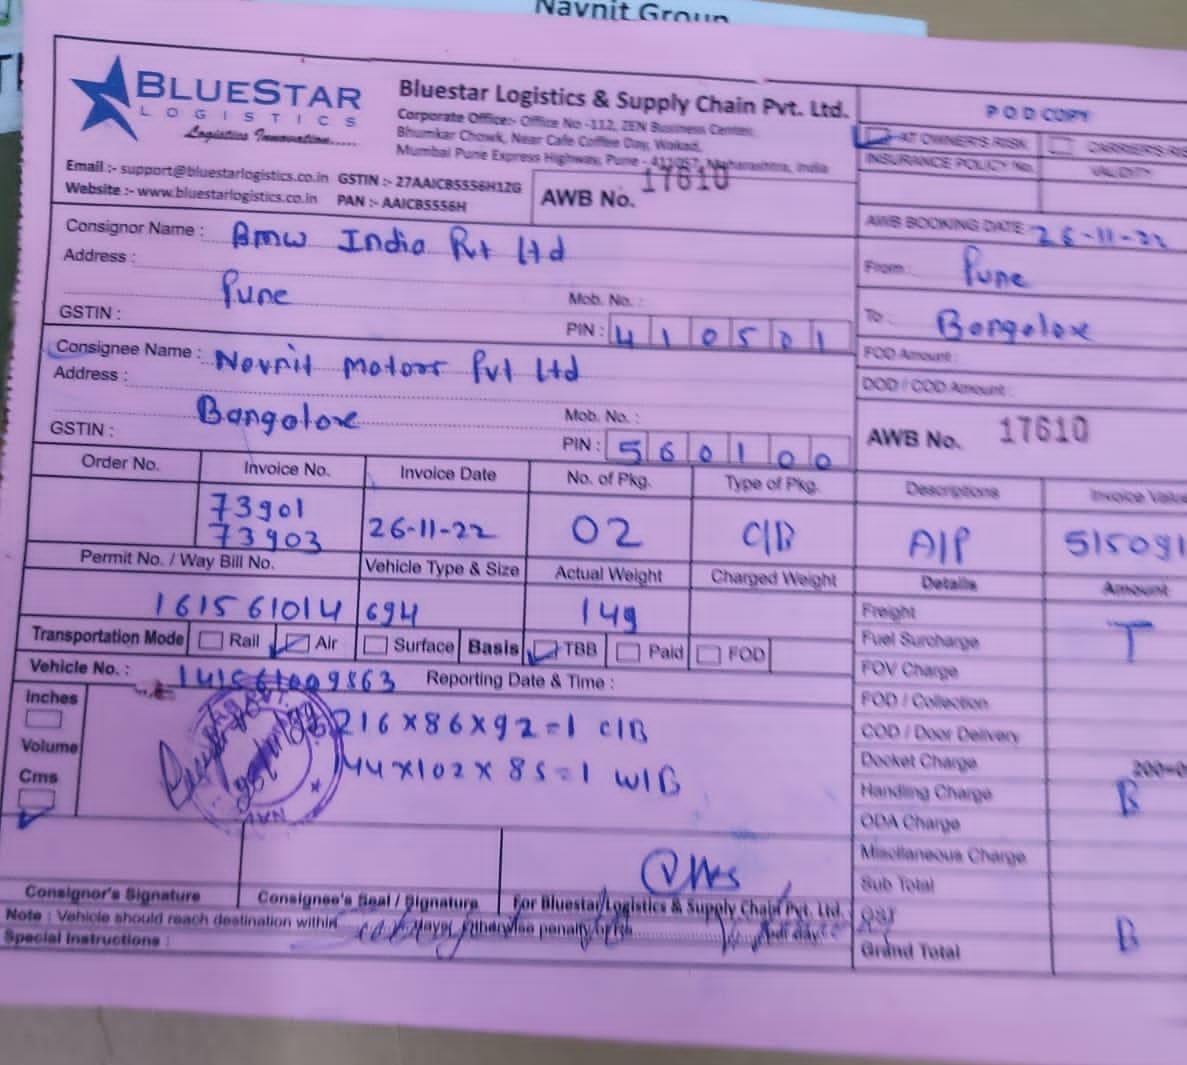 Navnit Group
BLUESTAR
LOGISTICS
Logistics Innovation.....
Bluestar Logistics & Supply Chain Pvt. Ltd.
Corporate Office:- Office No -112, ZEN Business Center,
Bhumkar Chowk, Near Cafe Coffee Day, Wakad,
Mumbai Pune Express Highway, Pune - 411057, Maharashtra, India
Email :- support@bluestarlogistics.co.in GSTIN :- 27AAICB5556H1ZG
Website :- www.bluestarlogistics.co.in PAN :- AAICB5556H
AWB No. 17610
POD COPY
AT OWNER'S RISK CARRIER'S RIS
INSURANCE POLICY No. VALIDITY
AWB BOOKING DATE : 26-11-22
From : Pune
To : Bangalore
FOD Amount :
DOD / COD Amount :
AWB No. 17610
Consignor Name : BMW India Pvt Ltd
Address :
Pune
Mob. No. :
GSTIN :
PIN : 410501
Consignee Name : Navnit Motors Pvt Ltd
Address :
Bangalore
Mob. No. :
GSTIN :
PIN : 560100
Order No. Invoice No. Invoice Date No. of Pkg. Type of Pkg. Descriptions Invoice Value
73901
73903 26-11-22 02 C/B A/P 515091
Permit No. / Way Bill No. Vehicle Type & Size Actual Weight Charged Weight Details Amount
161561014 694 149
Freight
Fuel Surcharge T
FOV Charge
FOD / Collection
COD / Door Delivery
Docket Charge 200=0
Handling Charge B
ODA Charge
Miscllaneous Charge
Sub Total
GST
Grand Total B
Transportation Mode Rail Air Surface Basis TBB Paid FOD
Vehicle No. : 141561009863 Reporting Date & Time :
Inches
Volume
Cms
216x86x92=1 C/B
144x102x85=1 W/B
Consignor's Signature Consignee's Seal / Signature For Bluestar Logistics & Supply Chain Pvt. Ltd.
Note : Vehicle should reach destination within days, otherwise penalty of Rs. per day.
Special Instructions :